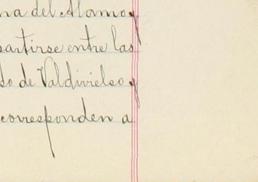 na del Alamo y
partirse entre las
so de Valdivielso y
corresponden a